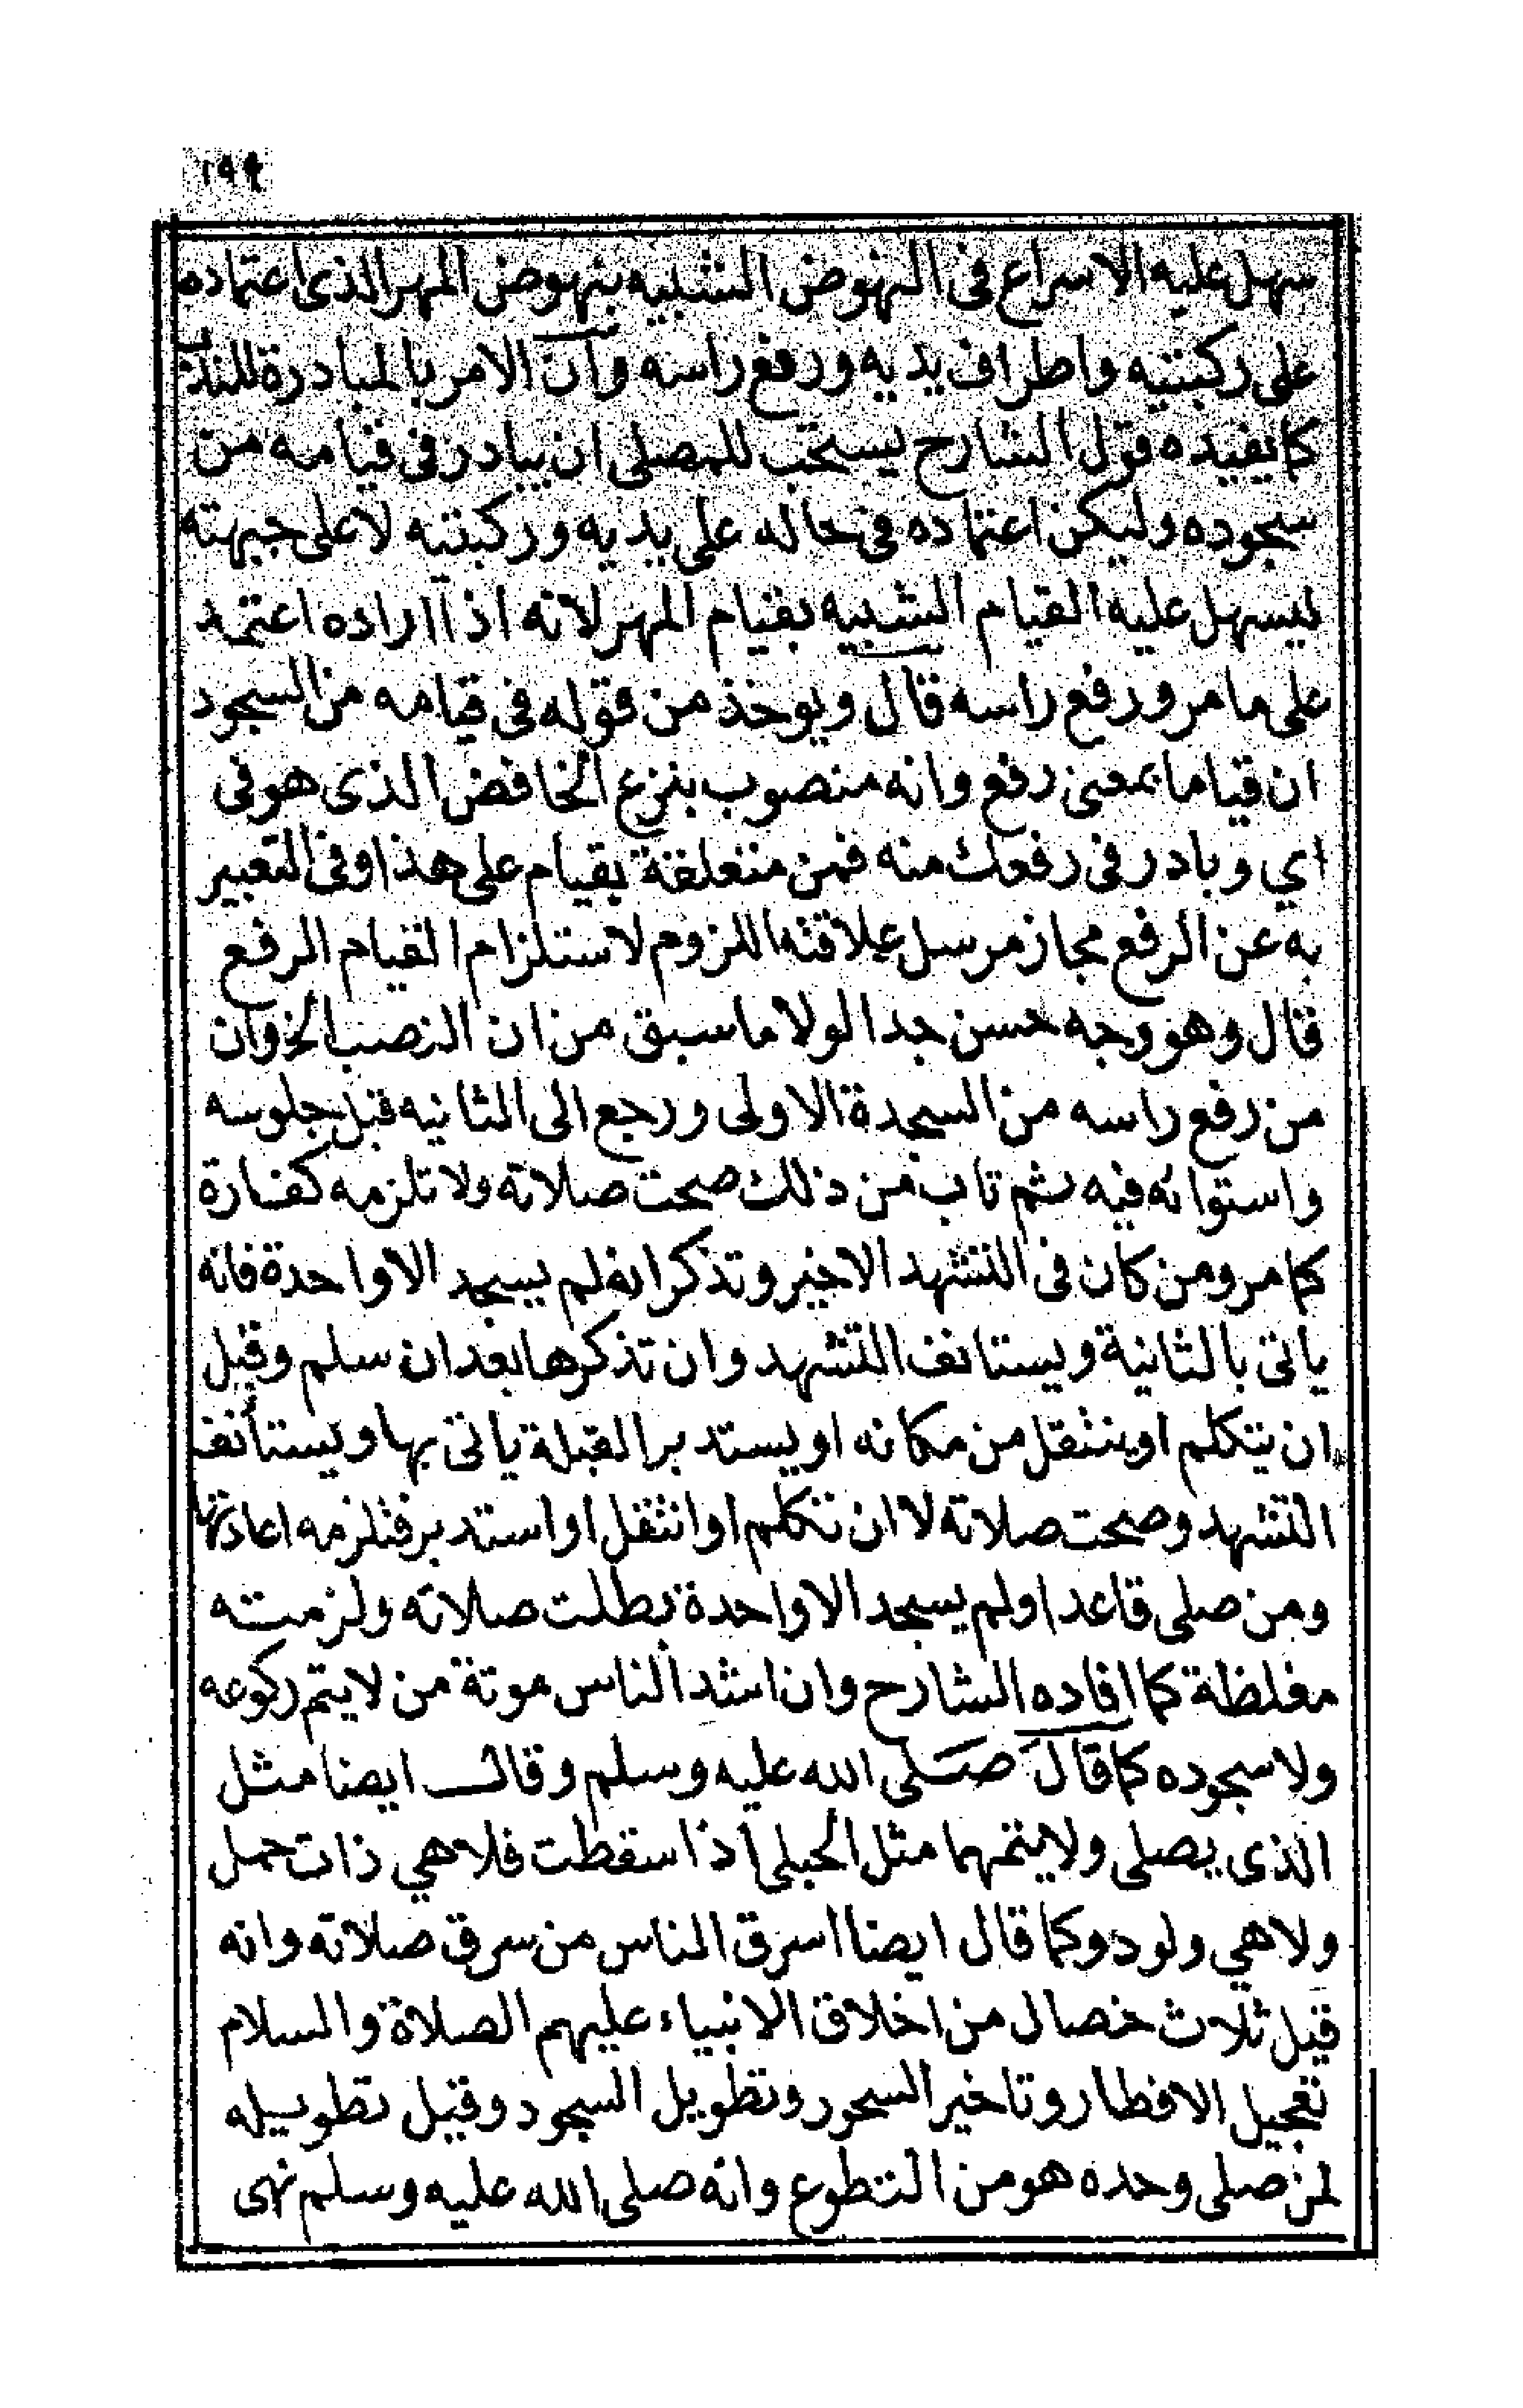 سهل عليه الاسراع فى النهوض الشبيه بنهوض المهر الذى اعتماده
على ركبتيه واطراف يديه ورفع راسه وان الامر بالمبادرة للندب
كما يفيده قول الشارح يستحب للمصلى ان يبادر فى قيامه من
سجوده وليكن اعتماده فى حاله على يديه وركبتيه لا على جبهته
ليسهل عليه القيام الشبيه بقيام المهر لانه اذا اراده اعتمد
على ما مر ورفع راسه قال ويوخذ من قوله فى قيامه من السجود
ان قياما بمعنى رفع وانه منصوب بنزع الخافض الذى هو فى
اي وبادر فى رفعك منه فمن متعلقة بقيام على هذا وفى التعبير
به عن الرفع مجاز مرسل علاقته اللزوم لاستلزام القيام الرفع
قال وهو وجه حسن جدا لولا ما سبق من ان النصب الخ وان
من رفع راسه من السجدة الاولى ورجع الى الثانيه قبل جلوسه
واستوائه فيه ثم تاب من ذلك صحت صلاته ولا تلزمه كفارة
كما مر ومن كان فى التشهد الاخير وتذكر انه لم يسجد الا واحدة فانه
ياتى بالثانية ويستانف التشهد وان تذكرها بعد ان سلم وقبل
ان يتكلم او ينتقل من مكانه او يستدبر القبلة ياتى بها ويستأنف
التشهد وصحت صلاته لا ان تكلم او انتقل او استدبر فتلزمه اعادتها
ومن صلى قاعدا ولم يسجد الا واحدة بطلت صلاته ولزمته
مغلظة كما افاده الشارح وان اشد الناس موتة من لا يتم ركوعه
ولا سجوده كما قال صلى الله عليه وسلم وقال ايضا مثل
الذى يصلى ولا يتمهما مثل الحبلى اذا سقطت فلا هي ذات حمل
ولا هي ولود وكما قال ايضا اسرق الناس من سرق صلاته وانه
قيل ثلاث خصال من اخلاق الانبياء عليهم الصلاة والسلام
تعجيل الافطار وتاخير السحور وتطويل السجود وقيل تطويله
لمن صلى وحده هو من التطوع وانه صلى الله عليه وسلم نهى